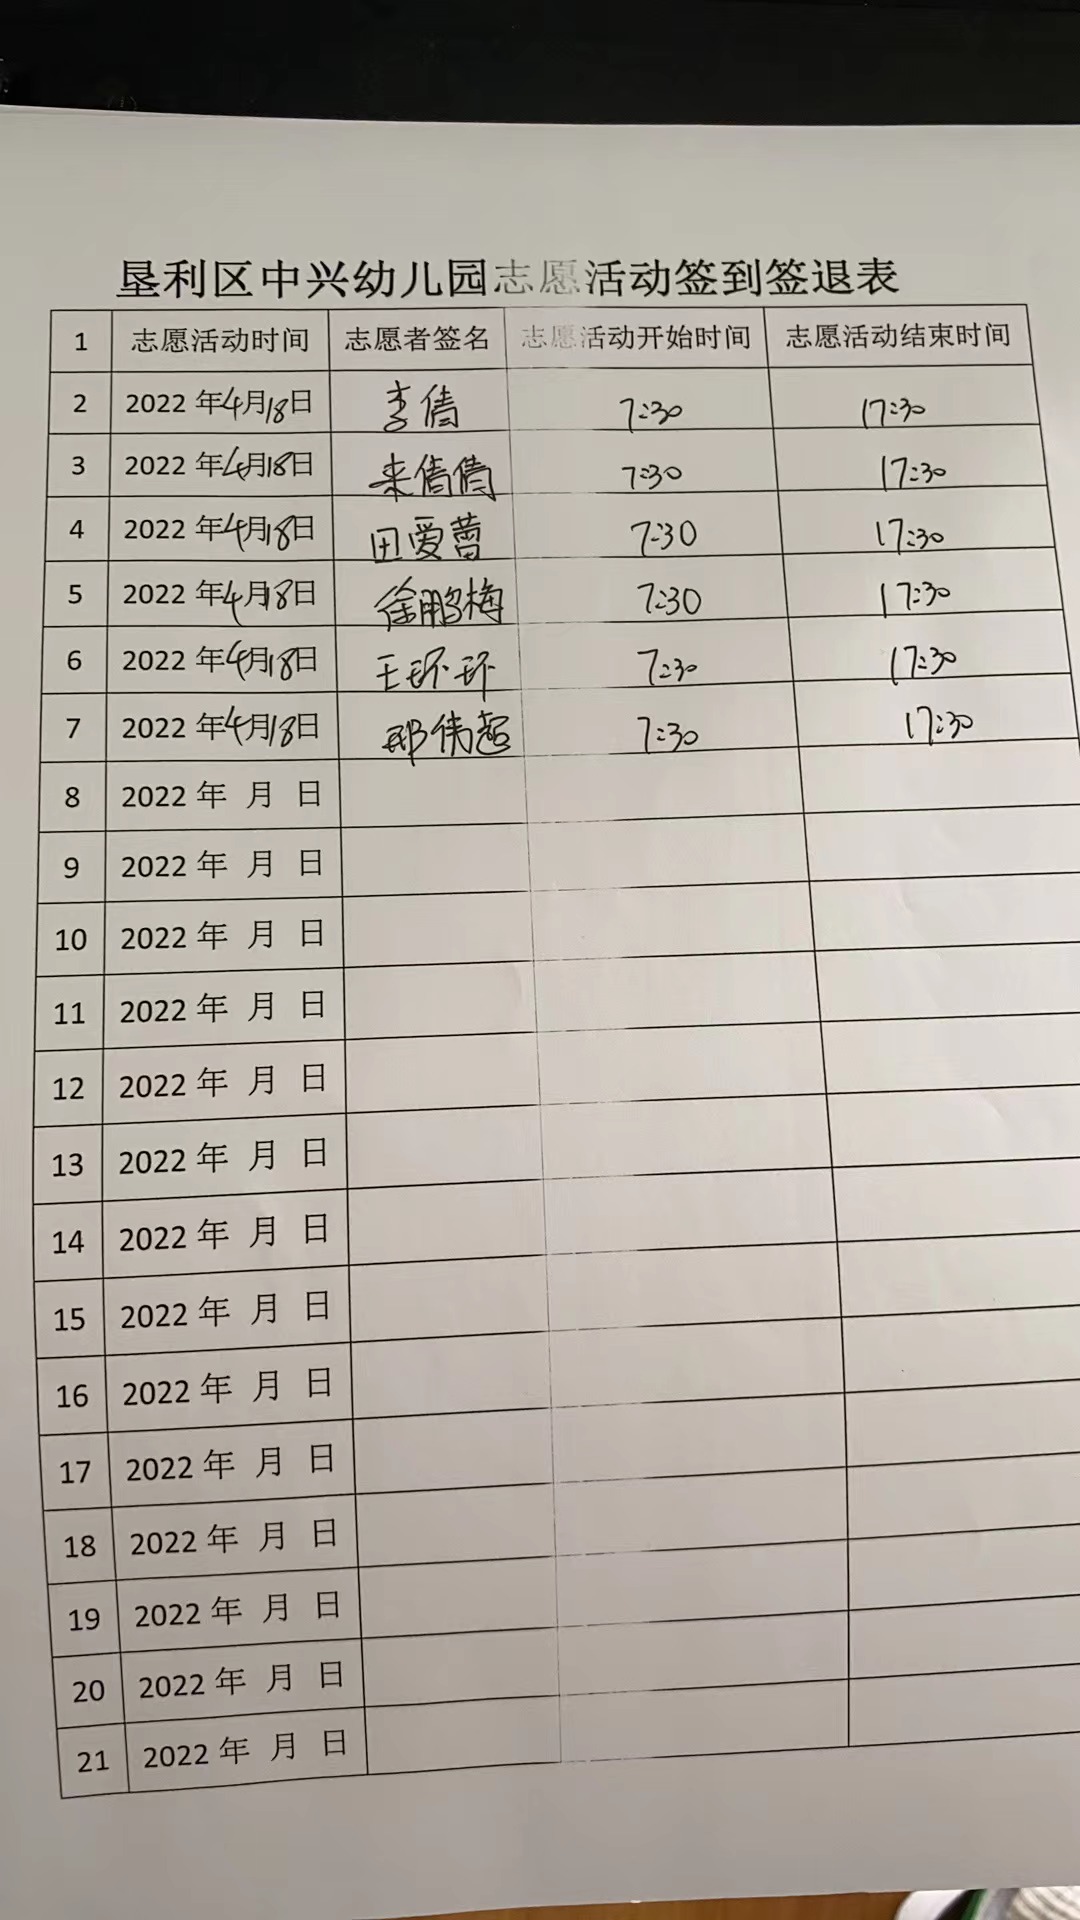 垦利区中兴幼儿园志愿活动签到签退表
1 志愿活动时间 志愿者签名 志愿活动开始时间 志愿活动结束时间
2 2022年4月18日 李倩 7:30 17:30
3 2022年4月18日 来倩倩 7:30 17:30
4 2022年4月18日 田爱蕾 7:30 17:30
5 2022年4月18日 徐鹏梅 7:30 17:30
6 2022年4月18日 王环环 7:30 17:30
7 2022年4月18日 邢伟超 7:30 17:30
8 2022年 月 日
9 2022年 月 日
10 2022年 月 日
11 2022年 月 日
12 2022年 月 日
13 2022年 月 日
14 2022年 月 日
15 2022年 月 日
16 2022年 月 日
17 2022年 月 日
18 2022年 月 日
19 2022年 月 日
20 2022年 月 日
21 2022年 月 日